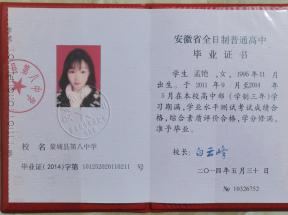 安徽省全日制普通高中
毕业证书
学生 孟艳 ,女,1995年11月
出生。于 2011 年 9 月至2014 年
5 月在本校高中部(学制三年)学
习期满,学业水平测试考试成绩合
格,综合素质评价合格,学分修满,
准予毕业。
校长:
二〇一四年五月三十日
№ 10326752
校 名:蒙城县第八中学
毕业证(2014)字第
第八中学